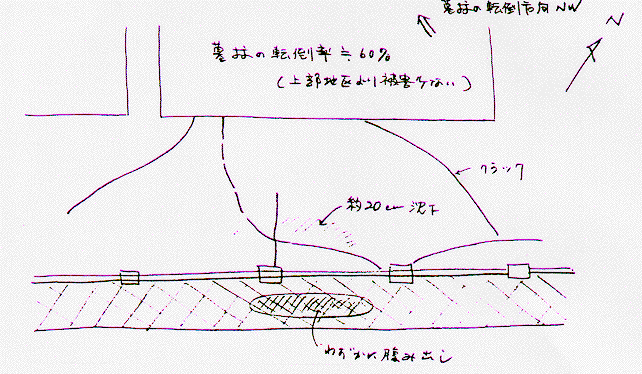 墓石の転倒方向 NW
N
墓石の転倒率≒60%
(上部地区より被害少ない)
クラック
約20cm沈下
わずかに腹み出し